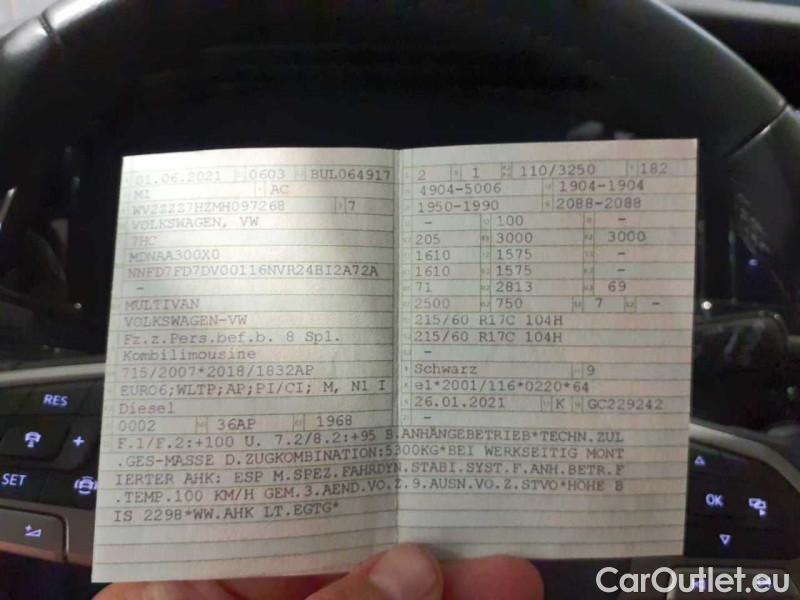 01.06.2021 0603 BUL064917
M1 AC
WV2ZZZ7HZMH097268 7
VOLKSWAGEN, VW
7HC
MDNAA300X0
NNFD7FD7DV00116NVR24BI2A72A
-
MULTIVAN
VOLKSWAGEN-VW
Fz.z.Pers.bef.b. 8 Spl.
Kombilimousine
715/2007*2018/1832AP
EURO6;WLTP;AP;PI/CI; M, N1 I
Diesel
0002 36AP 1968
2 1 110/3250 182
4904-5006 1904-1904
1950-1990 2088-2088
- 100 -
205 3000 3000
1610 1575 -
1610 1575 -
71 2813 69
2500 750 7 -
215/60 R17C 104H
215/60 R17C 104H
-
Schwarz 9
e1*2001/116*0220*64
26.01.2021 K GC229242
-
F.1/F.2:+100 U. 7.2/8.2:+95 B.ANHÄNGEBETRIEB*TECHN.ZUL
.GES-MASSE D.ZUGKOMBINATION:5300KG*BEI WERKSEITIG MONT
IERTER AHK: ESP M.SPEZ.FAHRDYN.STABI.SYST.F.ANH.BETR.F
.TEMP.100 KM/H GEM.3.AEND.VO.Z.9.AUSN.VO.Z.STVO*HÖHE B
IS 2298*WW.AHK LT.EGTG*
RES
SET
OK
CarOutlet.eu